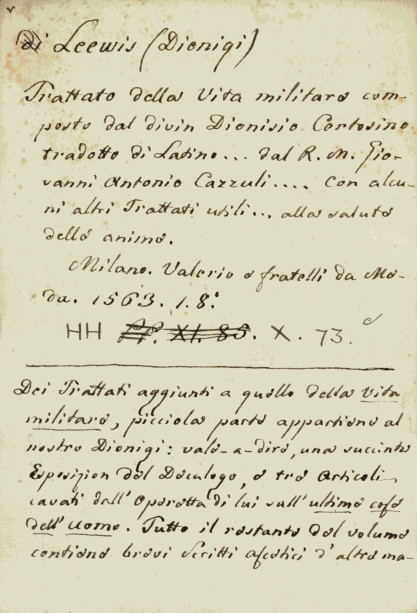 di Leewis (Dionigi)
Trattato della Vita militare com-
posto dal divin Dionisio Certosino
tradotto di Latino... dal R. M. Gio-
vanni Antonio Cazzuli.... con alcu-
ni altri Trattati utili... alla salute
delle anime.
Milano. Valerio e fratelli da Me-
da. 1563. 1. 8.
HH X. 73.
Dei Trattati aggiunti a quello della Vita
militare, picciola parte appartiene al
nostro Dionigi: vale-a-dire, una succinta
Esposizion del Decalogo, e tre Articoli
cavati dall'Operetta di lui sull'ultime cose
dell'Uomo. Tutto il restante del volume
contiene brevi scritti ascetici d'altra ma-